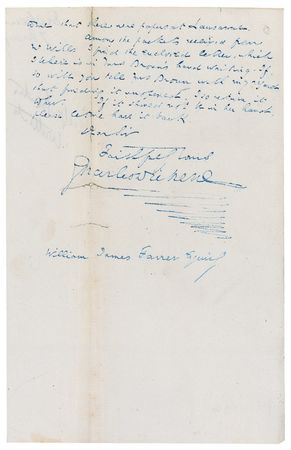 and that there were
Among the packets received from
Mr Wills I find the enclosed letter, which
I believe is in Mrs Brown's hand writing. If
so will you tell Mrs Brown with my regard
that finding it unopened I so return it
to her. If it should not be in her hand
please let me have it back
Dear Sir
Faithfully yours
Charles Dickens
William James Farrer Esquire